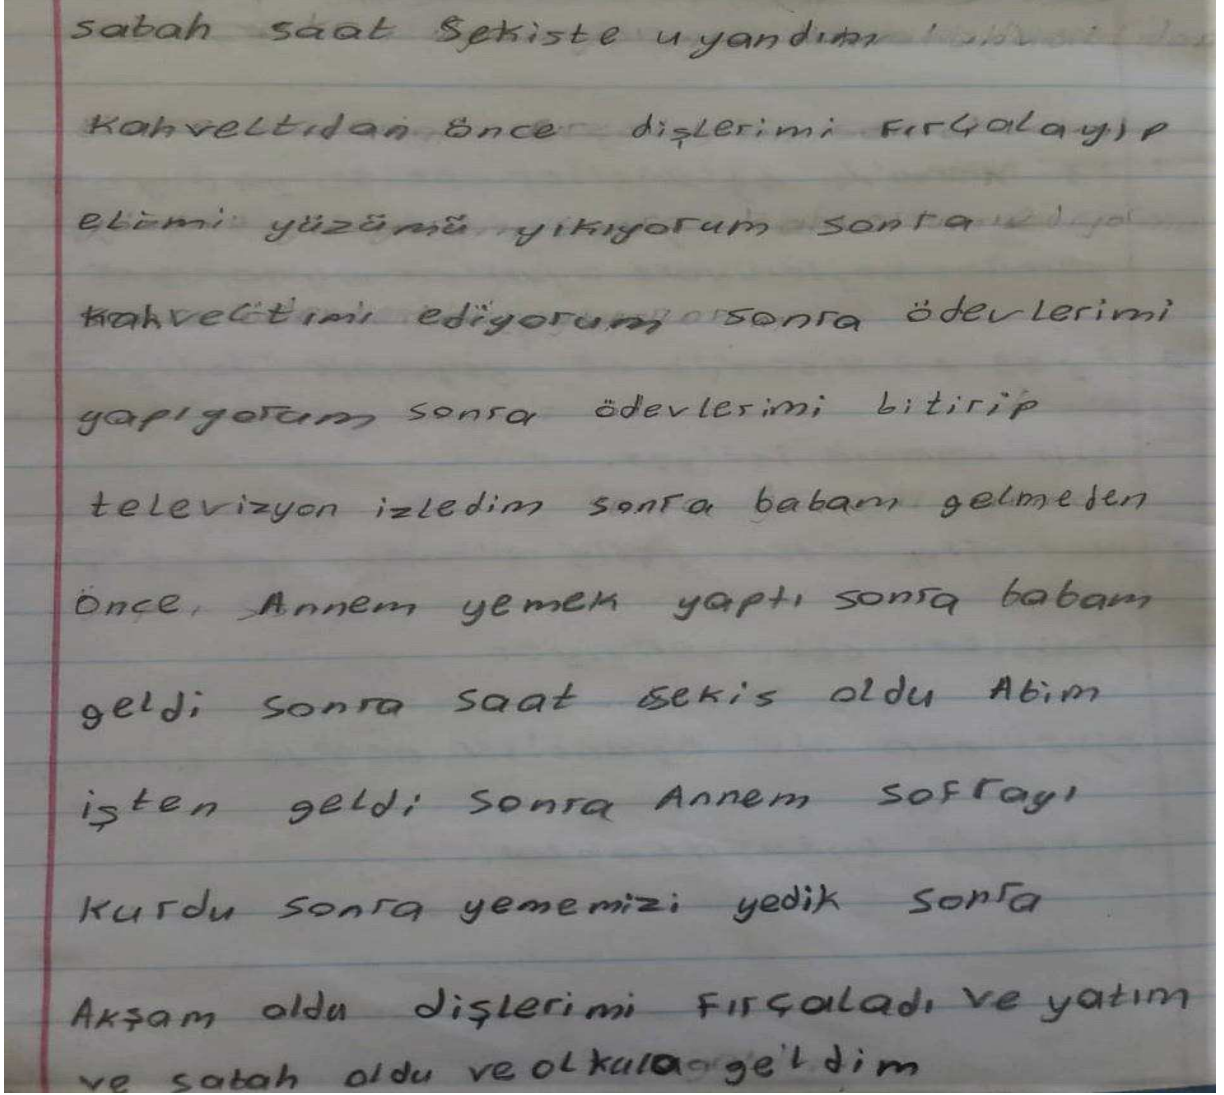 sabah saat Sekiste uyandım
Kahveltıdan önce dişlerimi Fırçalayıp
elimi yüzümü yıkıyorum sonra
kahveltimi ediyorum sonra ödevlerimi
yapıyorum sonra ödevlerimi bitirip
televizyon izledim sonra babam gelmeden
önce, Annem yemek yaptı sonra babam
geldi sonra saat sekis oldu Abim
işten geldi sonra Annem sofrayı
kurdu sonra yememizi yedik sonra
Akşam oldu dişlerimi Fırçaladı ve yatım
ve sabah oldu ve olkula geldim